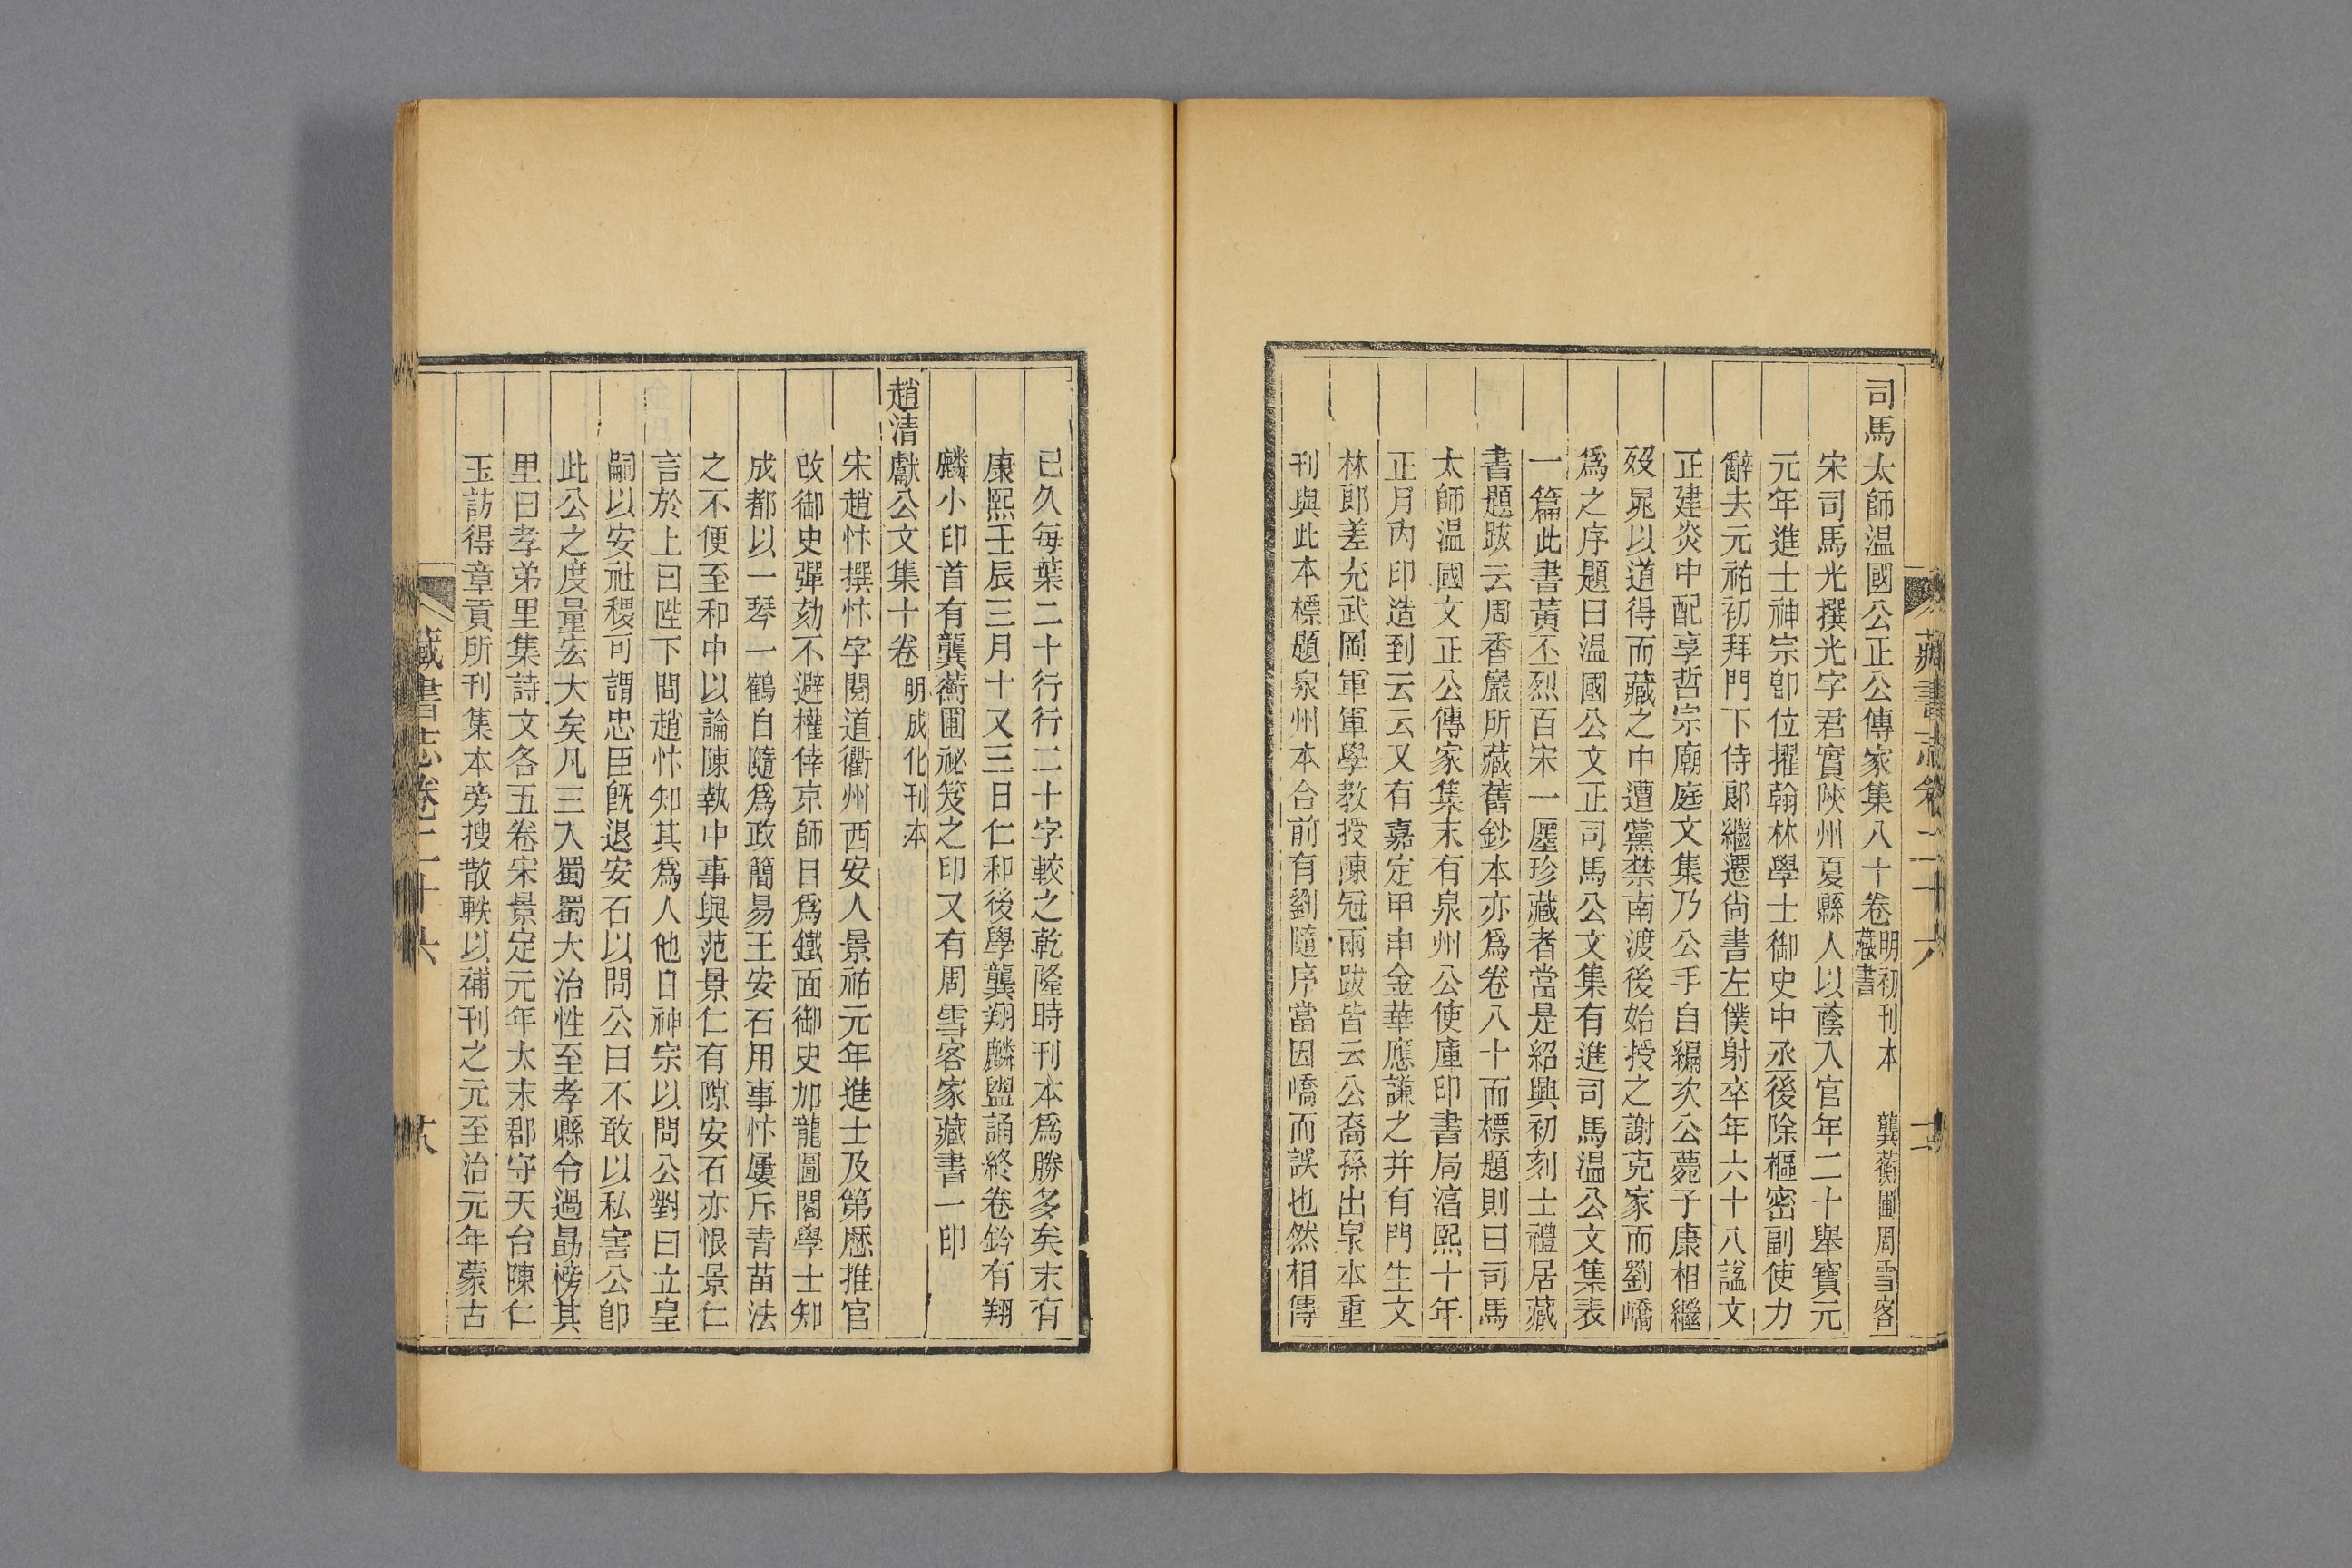 藏書志卷二十六
司馬太師温國公正公傳家集八十卷 明初刊本 龔蘅圃周雪客藏書
宋司馬光撰光字君實陝州夏縣人以蔭入官年二十舉寶元
元年進士神宗卽位擢翰林學士御史中丞後除樞密副使力
辭去元祐初拜門下侍郎繼遷尙書左僕射卒年六十八諡文
正建炎中配享哲宗廟庭文集乃公手自編次公薨子康相繼
歿晁以道得而藏之中遭黨禁南渡後始授之謝克家而劉嶠
爲之序題曰温國公文正司馬公文集有進司馬温公文集表
一篇此書黃丕烈百宋一廛珍藏者當是紹興初刻士禮居藏
書題跋云周香嚴所藏舊鈔本亦爲卷八十而標題則曰司馬
太師温國文正公傳家集末有泉州公使庫印書局湻熙十年
正月內印造到云云又有嘉定甲申金華應謙之并有門生文
林郎差充武岡軍軍學教授陳冠兩跋皆云公裔孫出泉本重
刊與此本標題泉州本合前有劉隨序當因嶠而誤也然相傳
已久每葉二十行行二十字較之乾隆時刊本爲勝多矣末有
康熙壬辰三月十又三日仁和後學龔翔麟盥誦終卷鈐有翔
麟小印首有龔蘅圃祕笈之印又有周雪客家藏書一印
趙清獻公文集十卷 明成化刊本
宋趙忭撰忭字閱道衢州西安人景祐元年進士及第歷推官
改御史彈劾不避權倖京師目爲鐵面御史加龍圖閣學士知
成都以一琴一鶴自隨爲政簡易王安石用事忭屢斥青苗法
之不便至和中以論陳執中事與范景仁有隙安石亦恨景仁
言於上曰陛下問趙忭知其爲人他日神宗以問公對曰立皇
嗣以安社稷可謂忠臣旣退安石以問公曰不敢以私害公卽
此公之度量宏大矣凡三入蜀蜀大治性至孝縣令過勗榜其
里曰孝弟里集詩文各五卷宋景定元年太末郡守天台陳仁
玉訪得章貢所刊集本旁搜散軼以補刊之元至治元年蒙古
藏書志卷二十六